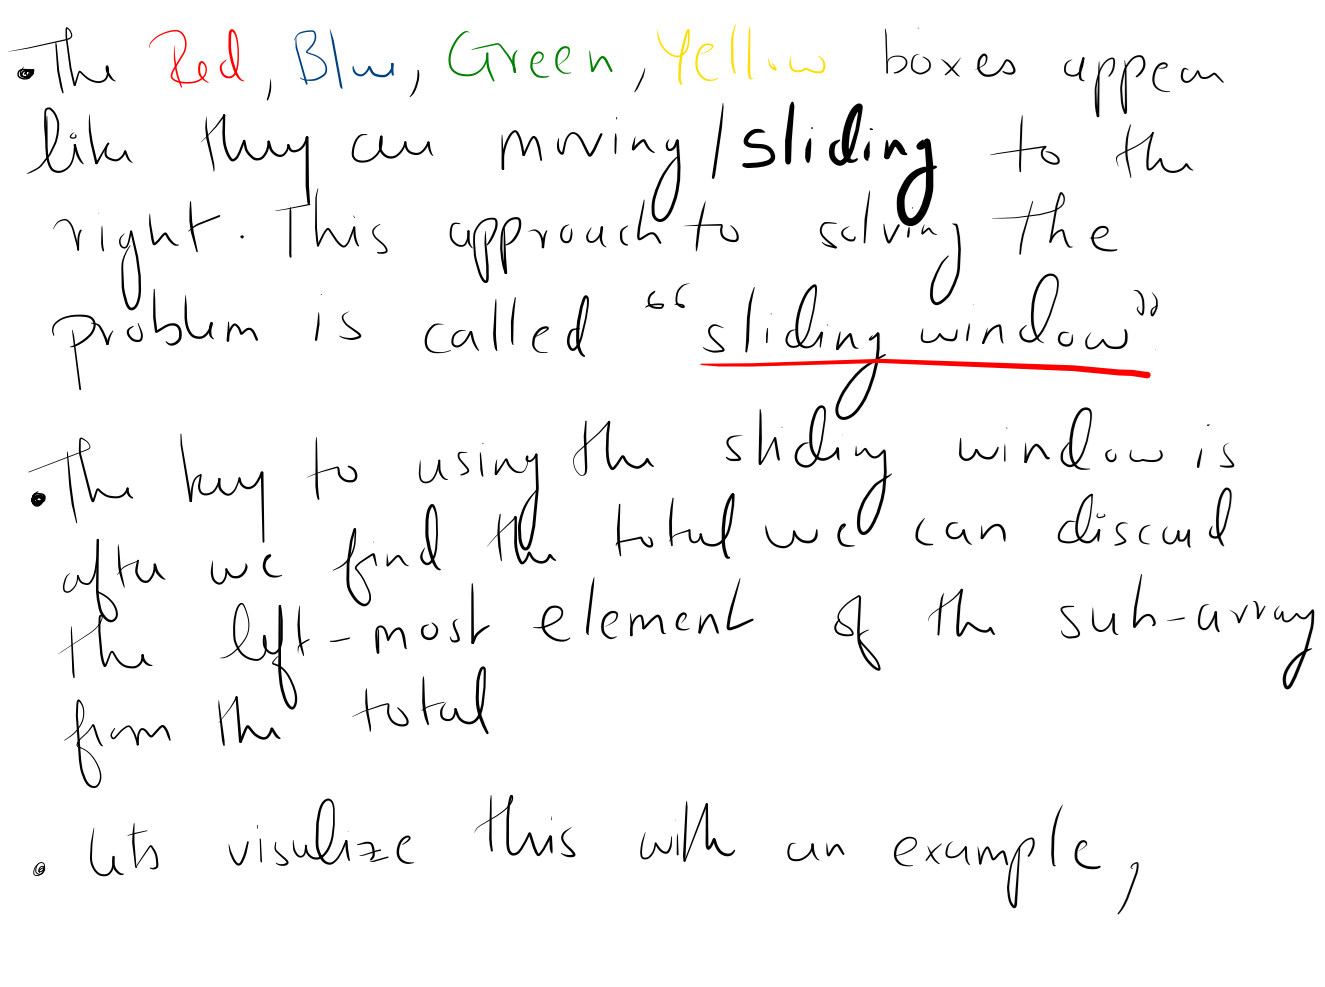 • The Red, Blue, Green, Yellow boxes appear
like they are moving / sliding to the
right. This approach to solving the
problem is called “sliding window”
• The key to using the sliding window is
after we find the total we can discard
the left-most element of the sub-array
from the total
• lets visulize this with an example,